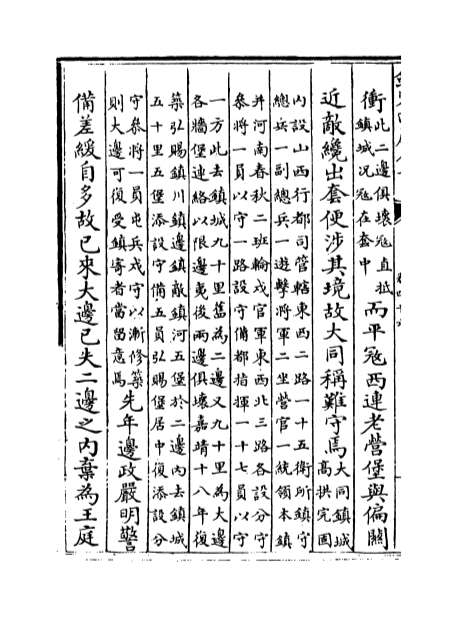 衝此二邊俱壞寇直抵鎮城况寇在套中而平寇西連老營堡與偏關
近敵纔出套便涉其境故大同稱難守焉大同鎮城高拱完固
内設山西行都司管轄東西二路一十五衛所鎮守
總兵一副總兵一遊擊將軍二坐營官一統領本鎮
并河南春秋二班輪戍官軍東西北三路各設分守
叅將一員以守一路設守備都指揮一十七員以守
一方此去鎮城九十里舊為二邊又九十里為大邊
各牆堡連絡以限邊夷後兩邊俱壞嘉靖十八年復
築弘賜鎮川鎮邊鎮敵鎮河五堡於二邊内去鎮城
五十里五堡添設守備五員弘賜堡居中復添設分
守叅將一員屯兵戍守以漸修築則大邊可復受鎮寄者當留意焉先年邊政嚴明警
備差緩自多故已來大邊已失二邊之内棄為王庭